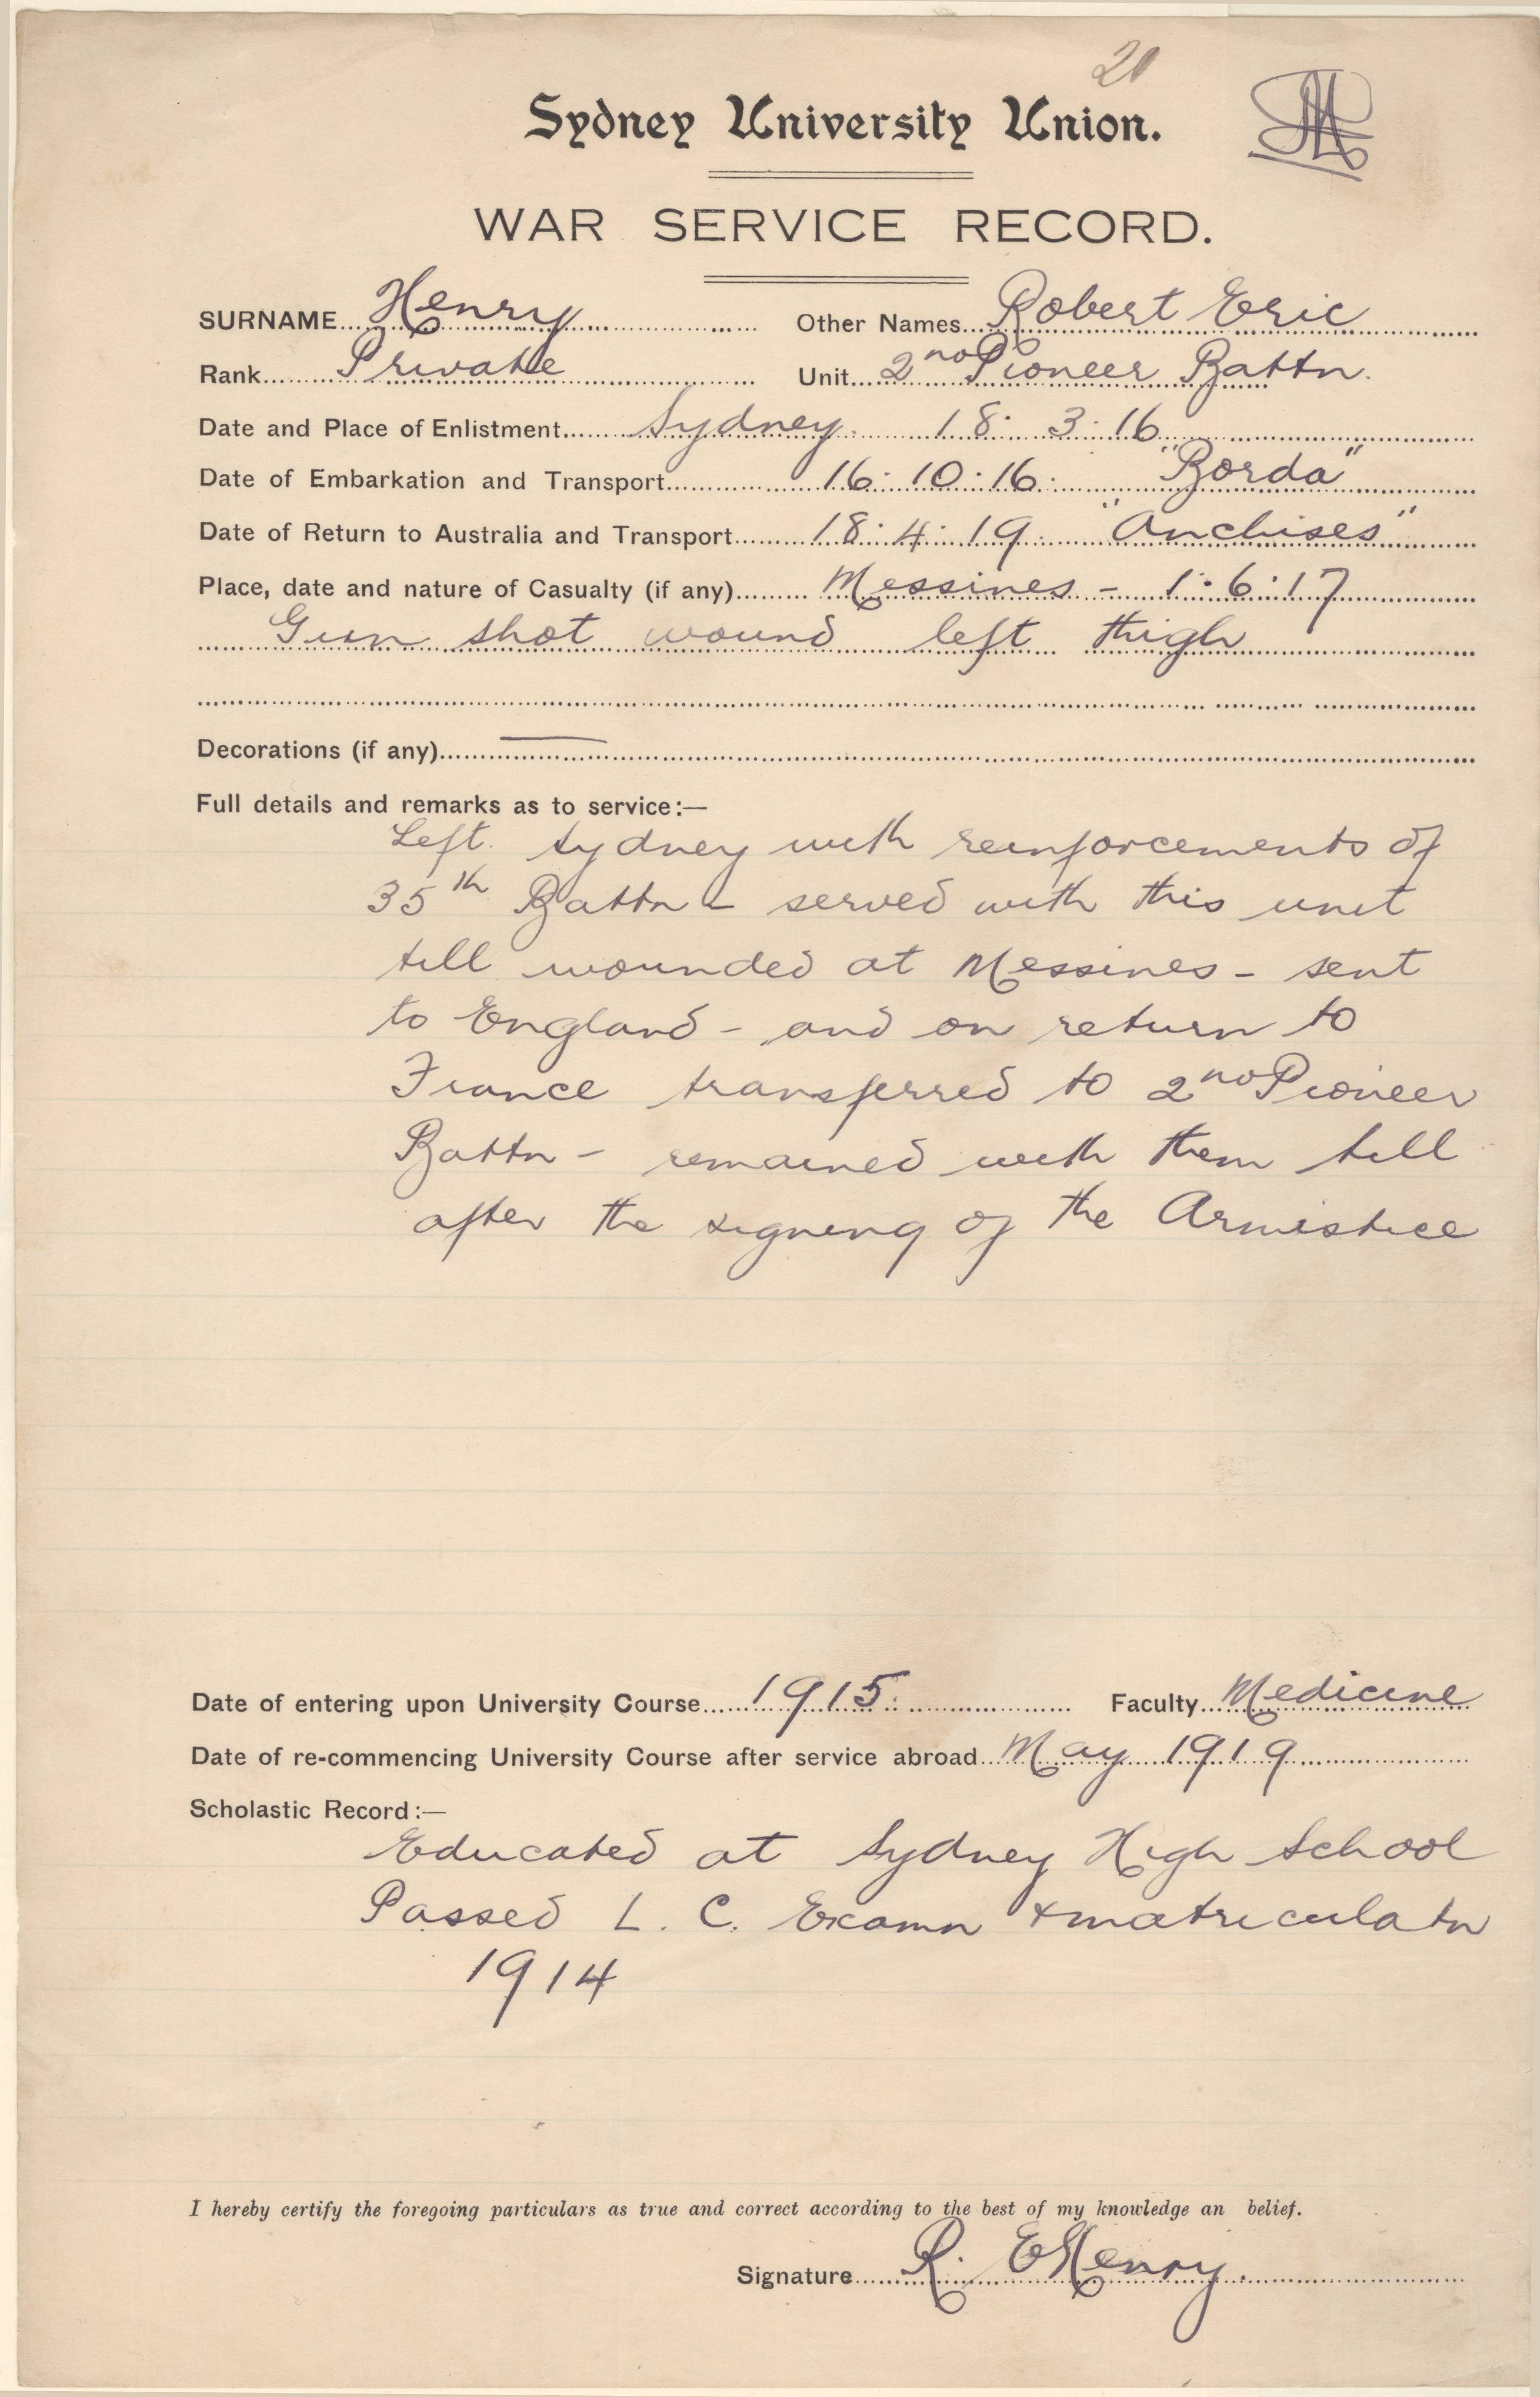 20
Sydney University Union.
WAR SERVICE RECORD.
SURNAME Henry Other Names Robert Eric
Rank Private Unit 2nd Pioneer Battn.
Date and Place of Enlistment Sydney. 18. 3. 16
Date of Embarkation and Transport 16. 10. 16. "Borda"
Date of Return to Australia and Transport 18. 4. 19. "Anchises"
Place, date and nature of Casualty (if any) Messines - 1. 6. 17
Gun shot wound left thigh
Decorations (if any) —
Full details and remarks as to service:—
Left Sydney with reinforcements of
35th Battn - served with this unit
till wounded at Messines - sent
to England - and on return to
France transferred to 2nd Pioneer
Battn - remained with them till
after the signing of the Armistice
Date of entering upon University Course 1915. Faculty Medicine
Date of re-commencing University Course after service abroad May 1919
Scholastic Record:—
Educated at Sydney High School
Passed L. C. Examn & matriculatn
1914
I hereby certify the foregoing particulars as true and correct according to the best of my knowledge an belief.
Signature R. E Henry.